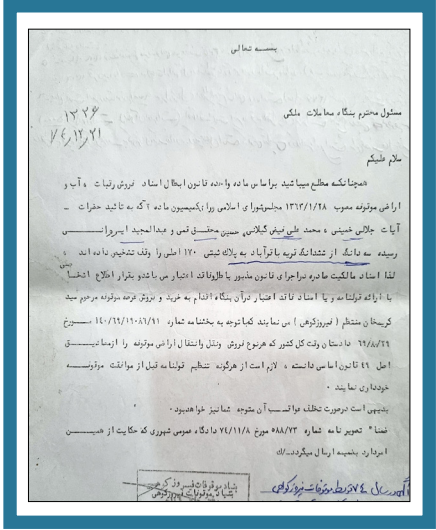 بسمه تعالی
۱۳۲۶
۷۴،۱۲،۲۱
مسئول محترم بنگاه معاملات ملکی
سلام علیکم
همچنانکه مطلع میباشید براساس ماده واحده قانون ابطال اسناد فروش رقبات و آب و
اراضی موقوفه مصوب ۱۳۶۳/۱/۲۸ مجلس شورای اسلامی ورای کمیسیون ماده ۲ که به تائید حضرات
آیات جلالی خمینی و محمد علی فیض گیلانی, حسین محقق قمی و عبدالمجید
رسیده سه دانگ از ششدانگ قریه باقرآباد به پلاک ثبتی ۱۷۰ اصلی را وقف تشخیص داده اند و
لذا اسناد مالکیت صادره دراجرای قانون مذبور باطل وفاقد اعتبار می باشد و بقرار اطلاع اشخا
با ارائه قولنامه و یا اسناد فاقد اعتبار درآن بنگاه اقدام به خرید و فروش عرصه موقوفه مرحوم سید
کریمخان منتظم ( فیروزکوهی ) می نمایند که با توجه به بخشنامه شماره ۱۴۰/۶۹/۱۹۰۸۶/۹۱ مــورخ
۶۹/۸/۲۶ دادستان وقت کل کشور که هرنوع فروش ونقل وانتقال اراضی موقوفه را ازمصادیــق
اصل ۴۹ قانون اساسی دانسته و لازم است از هرگونه تنظیم قولنامه قبل از موافقت موقوفــه
خودداری نمایند ۰
بدیهی است درصورت تخلف عواقــب آن متوجه شما نیز خواهد بود۰
ضمنا" تصویر نامه شماره ۵۸۸/۷۳ مورخ ۷۴/۱۱/۸ دادگاه عمومی شهرری که حکایت از همیــن
امر دارد بضمیمه ارسال میگردد../ك
بنیاد موقوفات فیروزکوهی
سال ۷۴ توسط موقوفات فیروزکوهی